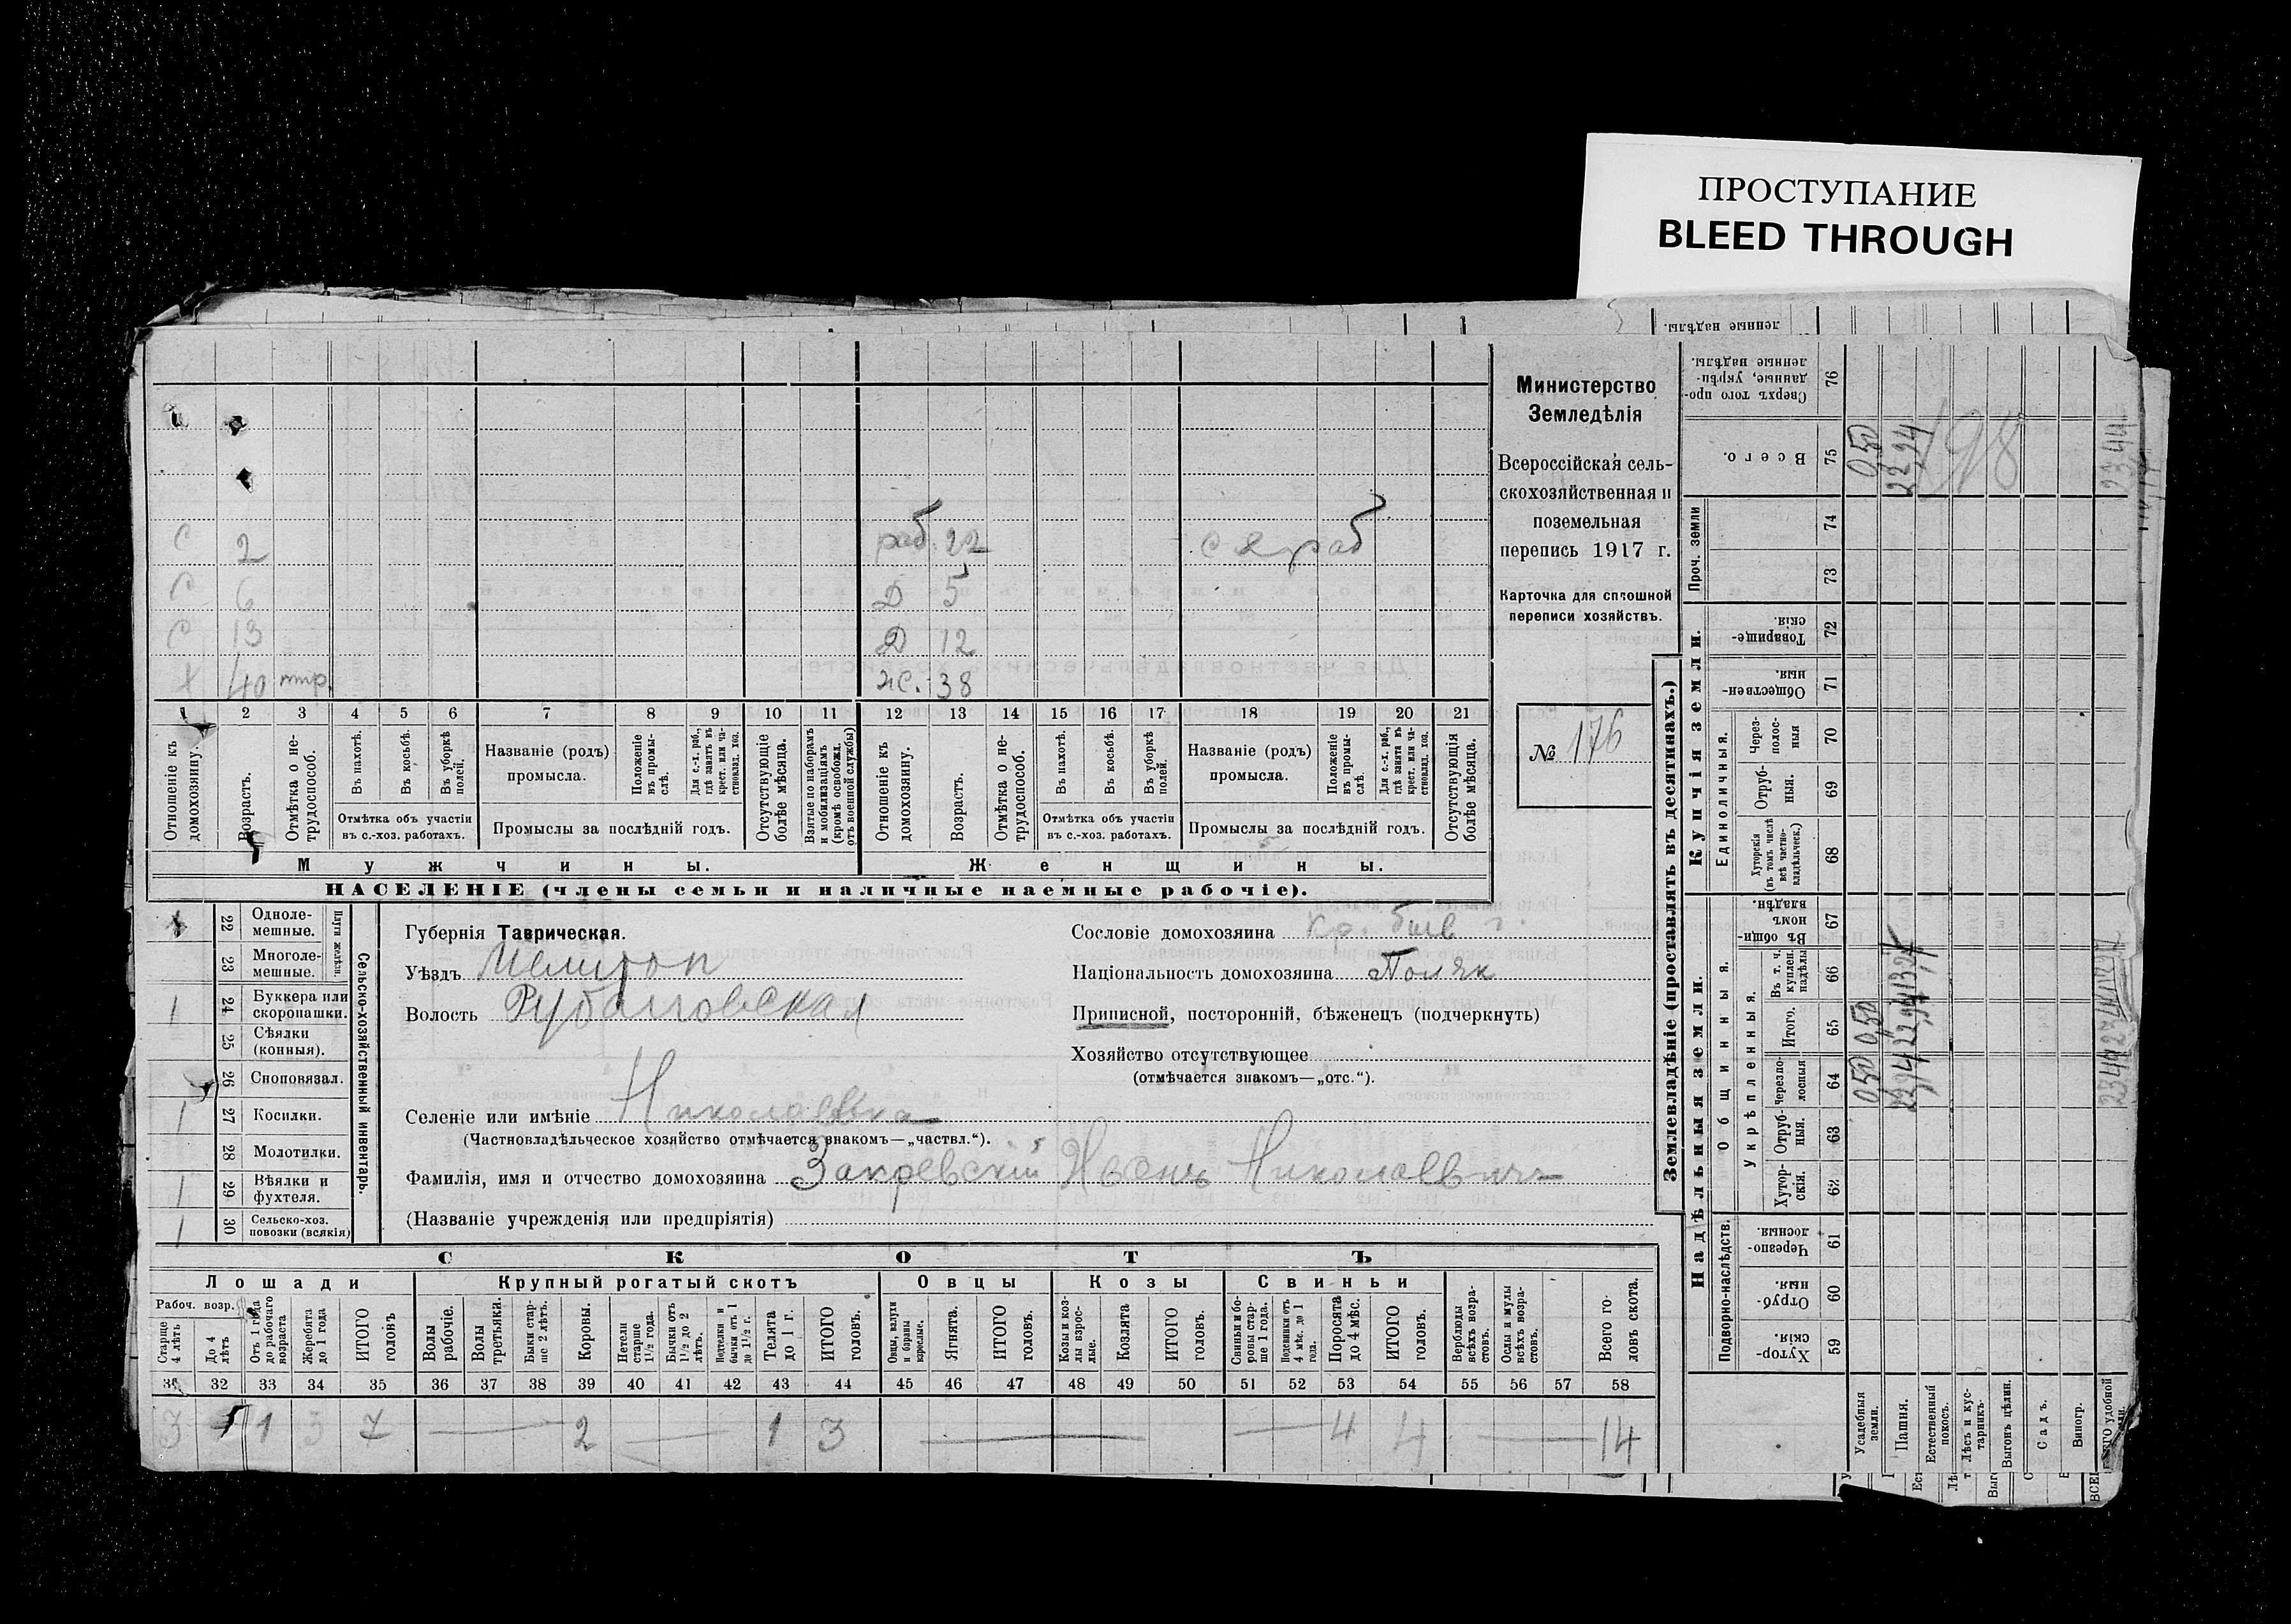 ПРОСТУПАНИЕ
BLEED THROUGH
Министерство
Земледѣлія
Всероссійская сель-
скохозяйственная и
поземельная
перепись 1917 г.
Карточка для сплошной
переписи хозяйствъ.
№ 176
С 2 раб. 22
С 6 Д 5
С 13 Д 12
Х 40 ж. 38
1 2 3 4 5 6 7 8 9 10 11 12 13 14 15 16 17 18 19 20 21
Отношеніе къ домохозяину.
Возрастъ.
Отмѣтка о не-трудоспособ.
Въ пахотѣ.
Въ косьбѣ.
Въ уборкѣ полей.
Отмѣтка объ участіи
въ с.-хоз. работахъ.
Названіе (родъ)
промысла.
Положеніе въ промы-слѣ.
Для с.-х. раб., гдѣ занятъ въ крест. или ча-стновлад. хоз.
Промыслы за послѣдній годъ.
Отсутствующіе болѣе мѣсяца.
Взятые по наборамъ и мобилизаціямъ (кромѣ освобожд. отъ военной службы)
Отношеніе къ домохозяину.
Возрастъ.
Отмѣтка о не-трудоспособ.
Въ пахотѣ.
Въ косьбѣ.
Въ уборкѣ полей.
Отмѣтка объ участіи
въ с.-хоз. работахъ.
Названіе (родъ)
промысла.
Положеніе въ промы-слѣ.
Для с.-х. раб., гдѣ занята въ крест. или ча-стновлад. хоз.
Промыслы за послѣдній годъ.
Отсутствующія болѣе мѣсяца.
Мужчины. Женщины.
НАСЕЛЕНІЕ (члены семьи и наличные наемные рабочіе).
22 Одноле-мешные.
23 Многоле-мешные.
Плуги желѣзн.
1 24 Буккера или скоропашки.
25 Сѣялки (конныя).
26 Сноповязал.
1 27 Косилки.
28 Молотилки.
1 29 Вѣялки и фухтеля.
1 30 Сельско-хоз. повозки (всякія)
Сельско-хозяйственный инвентарь.
Губернія Таврическая.
Уѣздъ Мелитоп
Волость Рубановская
Селеніе или имѣніе Николаевка
(Частновладѣльческое хозяйство отмѣчается знакомъ—„частвл.“).
Фамилія, имя и отчество домохозяина Закревскій Иванъ Николаевичъ
(Названіе учрежденія или предпріятія)
Сословіе домохозяина Кр. быв г.
Національность домохозяина Поляк
Приписной, посторонній, бѣженецъ (подчеркнуть)
Хозяйство отсутствующее
(отмѣчается знакомъ—„отс.“).
СКОТЪ
Лошади Крупный рогатый скотъ Овцы Козы Свиньи
Рабоч. возр.
Старше 4 лѣтъ
До 4 лѣтъ
Отъ 1 года до рабочаго возраста
Жеребята до 1 года
ИТОГО головъ
Волы рабочіе.
Волы третьяки.
Быки стар-ше 2 лѣтъ.
Коровы.
Нетели старше 1½ года.
Бычки отъ 1½ до 2 лѣтъ.
Подтелки и бычки отъ 1 до 1½ г.
Телята до 1 г.
ИТОГО головъ.
Овцы, валухи и бараны взрослые.
Ягнята.
ИТОГО головъ.
Козы и коз-лы взрос-лые.
Козлята
ИТОГО головъ.
Свиньи и бо-ровы стар-ше 1 года.
Подсвинки отъ 4 мѣс. до 1 года.
Поросята до 4 мѣс.
ИТОГО головъ.
Верблюды всѣхъ возра-стовъ.
Ослы и мулы всѣхъ возра-стовъ.
Всего го-ловъ скота.
31 32 33 34 35 36 37 38 39 40 41 42 43 44 45 46 47 48 49 50 51 52 53 54 55 56 57 58
3 1 3 7 2 1 3 4 4 14
Землевладѣніе (проставлять въ десятинахъ.)
Надѣльныя земли. Купчія земли.
Проч. земли
Подворно-наслѣдств.
Общинныя.
Укрѣпленныя.
Единоличныя.
Хутор-скія. 59
Отруб-ныя. 60
Черезпо-лосныя 61
Хутор-скія. 62
Отруб-ныя. 63
Черезпо-лосныя 64
Итого. 65
Въ т. ч. куплен. надѣлы 66
Въ общи-номъ владѣн. 67
Хуторскія (въ томъ числѣ всѣ частно-владѣльческ.) 68
Отруб-ныя. 69
Через-полос-ныя 70
Обществен-ныя. 71
Товарище-скія. 72
73
74
Всего. 75
Сверхъ того про-данные, укрѣп-ленные надѣлы. 76
Усадебныя земли. 0,50 0,50 0,50
Пашня.
Естественный покосъ.
Лѣсъ и кус-тарникъ.
Выгонъ цѣлин.
Садъ.
Виногр.
198